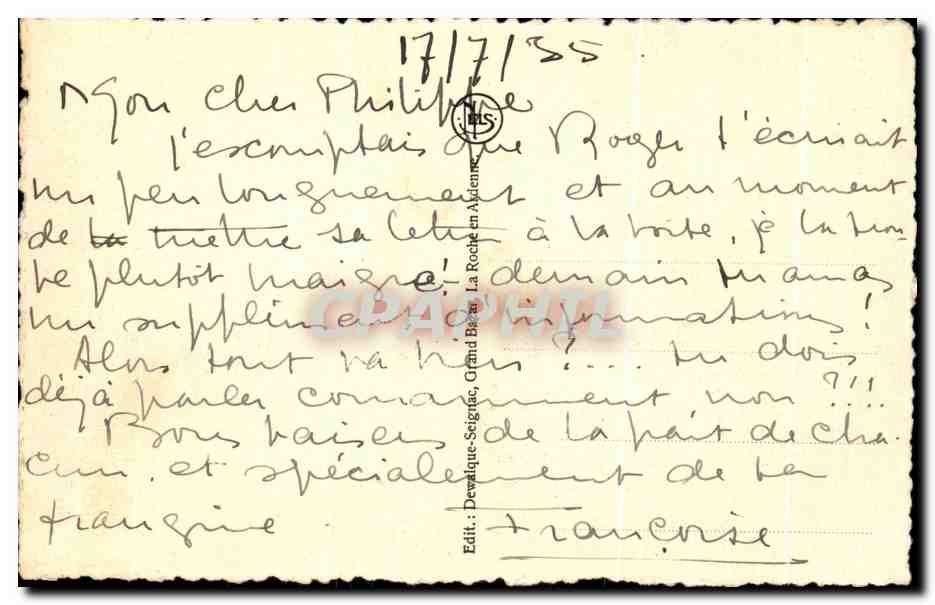 17/7/35
Mon cher Philippe
J'escomptais que Roger t'écrirait
un peu longuement et au moment
de la mettre sa lettre à la boite, je la trou-
ve plutôt maigre! demain tu auras
un supplément d'informations!
Alors tout va bien?.... tu dois
déjà parler couramment non?!!!
Bons baisers de la part de cha-
cun et spécialement de ta
frangine.
Françoise
ELS
Edit.: Dewalque-Seignac, Grand Bazar, La Roche en Ardenne.
CPAPHIL